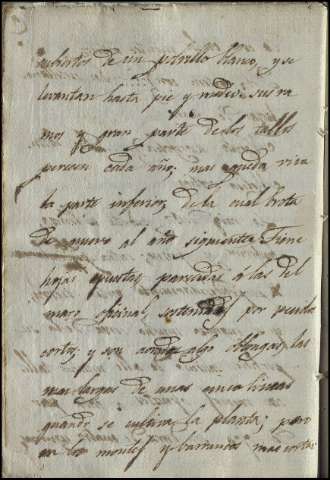 cubiertos de un pelusillo blanco, y se
levantan hasta pie y medio: sus ra
mos y gran parte de los tallos
perecen cada año; mas queda viva
la parte inferior, de la cual brota
de nuevo al año siguiente. Tiene
hojas opuestas, parecidas á las del
maro oficinal, sostenidas por
cortos, y son algo oblongas, las
mas largas de unas cinco lineas
quando se cultiva la planta; pero
en los montes y barrancos mas cortas